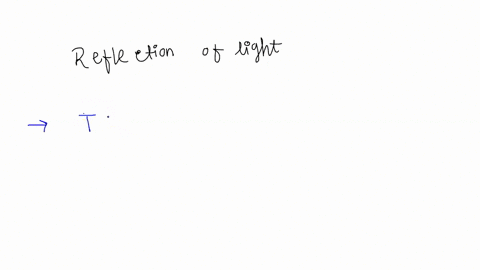 Reflection of light
→ T